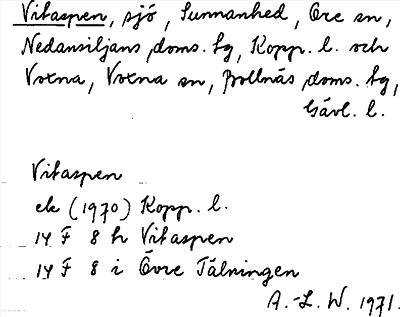 Vitaspen, sjö, Sunnanhed, Ore sn,
Nedansiljans doms. tg, Kopp. l. och
Voxna, Voxna sn, Bollnäs doms. tg,
Gävl. l.
Vitaspen
ek (1970) Kopp. l.
14 F 8 h Vitaspen
14 F 8 i Övre Tälningen
A.-L. W. 1971.